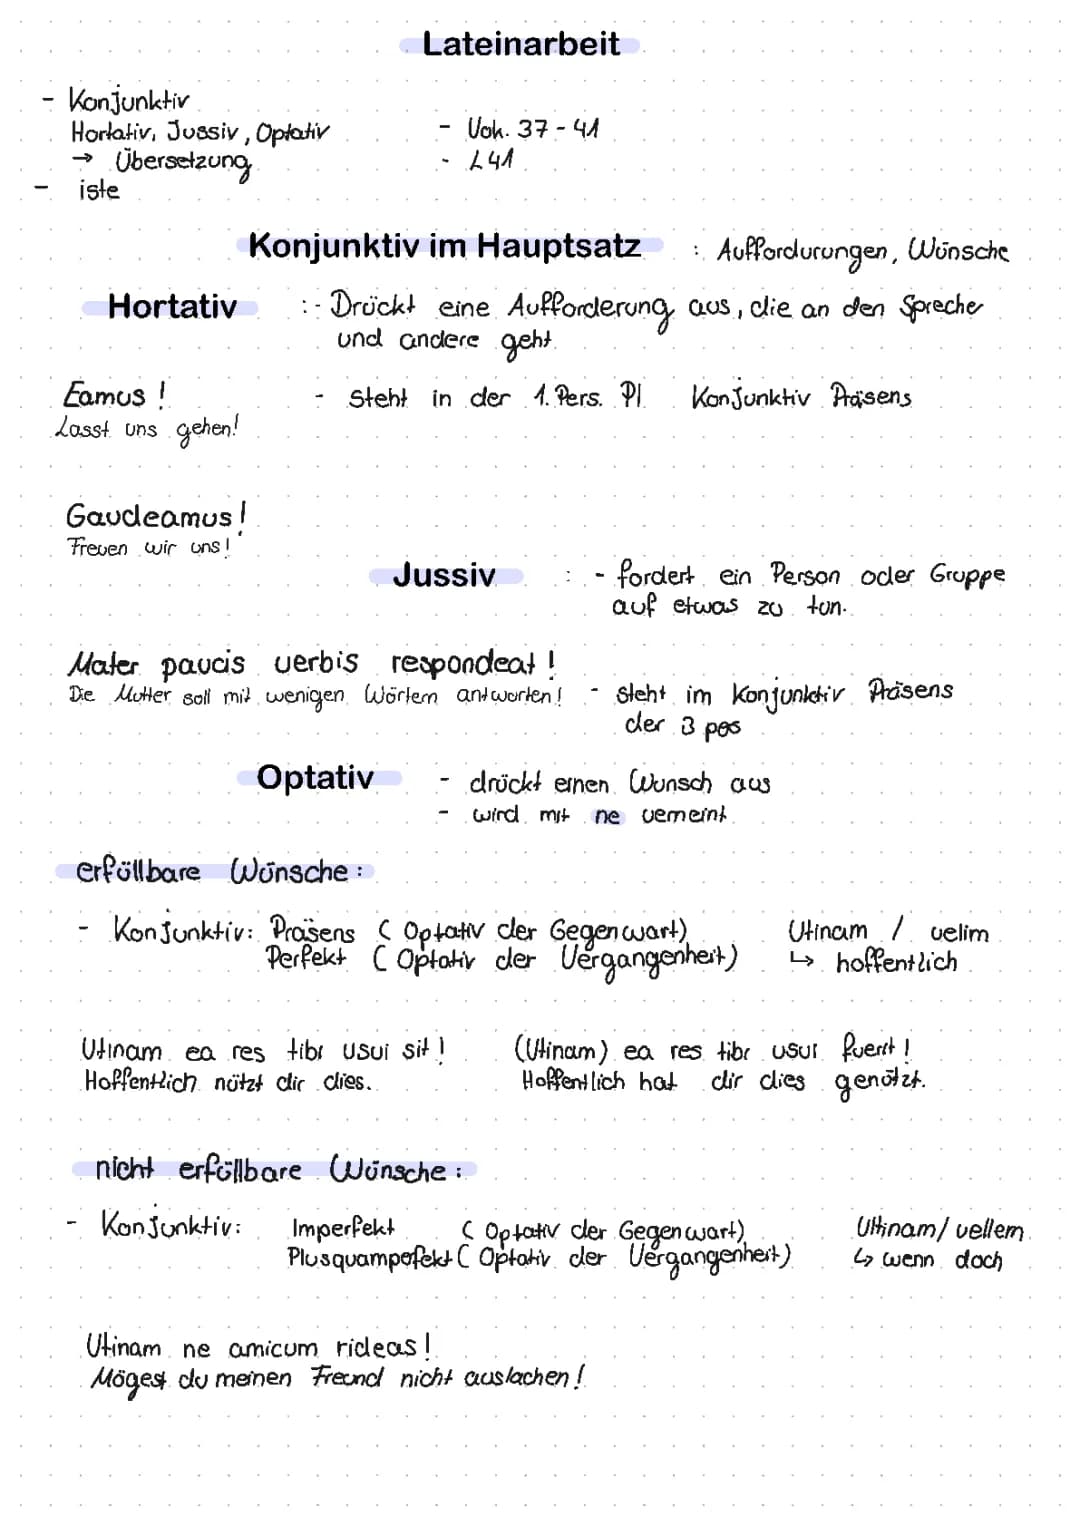 Lateinarbeit
- Konjunktiv
Hortativ, Jussiv, Optativ
→ Übersetzung
- iste
- Vok. 37 - 41
- L41
Konjunktiv im Hauptsatz : Auffordurungen, Wünsche
Hortativ :- Drückt eine Aufforderung aus, die an den Spreche
und andere geht
Eamus ! - Steht in der 1. Pers. Pl Konjunktiv Präsens
Lasst uns gehen!
Gaudeamus!
Freuen wir uns!
Jussiv : - fordert ein Person oder Gruppe
auf etwas zu tun.
Mater paucis verbis respondeat !
Die Mutter soll mit wenigen Wörtern antworten! - steht im Konjunktiv Präsens
der 3 pos
Optativ - drückt einen Wunsch aus
- wird mit ne verneint
erfüllbare Wünsche :
- Konjunktiv: Präsens ( Optativ der Gegenwart) Utinam / velim
Perfekt ( Optativ der Vergangenheit) ↳ hoffentlich
Utinam ea res tibi usui sit ! (Utinam) ea res tibi usui fuerit !
Hoffentlich nützt dir dies. Hoffentlich hat dir dies genützt.
nicht erfüllbare Wünsche :
- Konjunktiv: Imperfekt ( Optativ der Gegenwart) Utinam/ vellem
Plusquampefekt ( Optativ der Vergangenheit) ↳ wenn doch
Utinam ne amicum rideas !
Mögest du meinen Freund nicht auslachen !